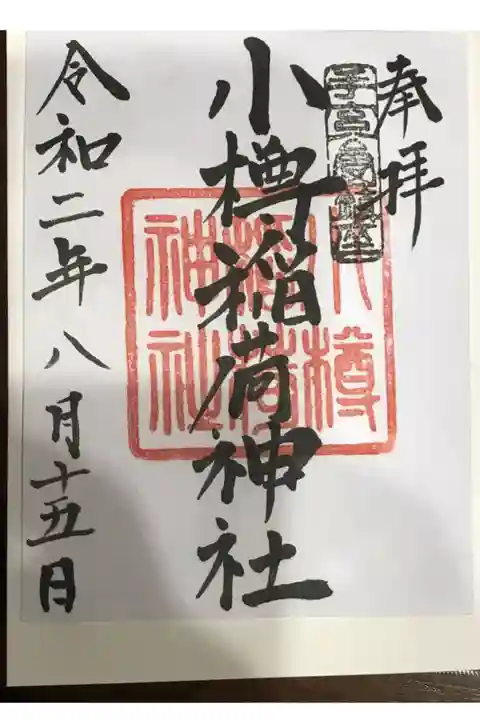 奉拝
小樽稲荷神社
小樽
稲荷
神社
令和二年八月十五日